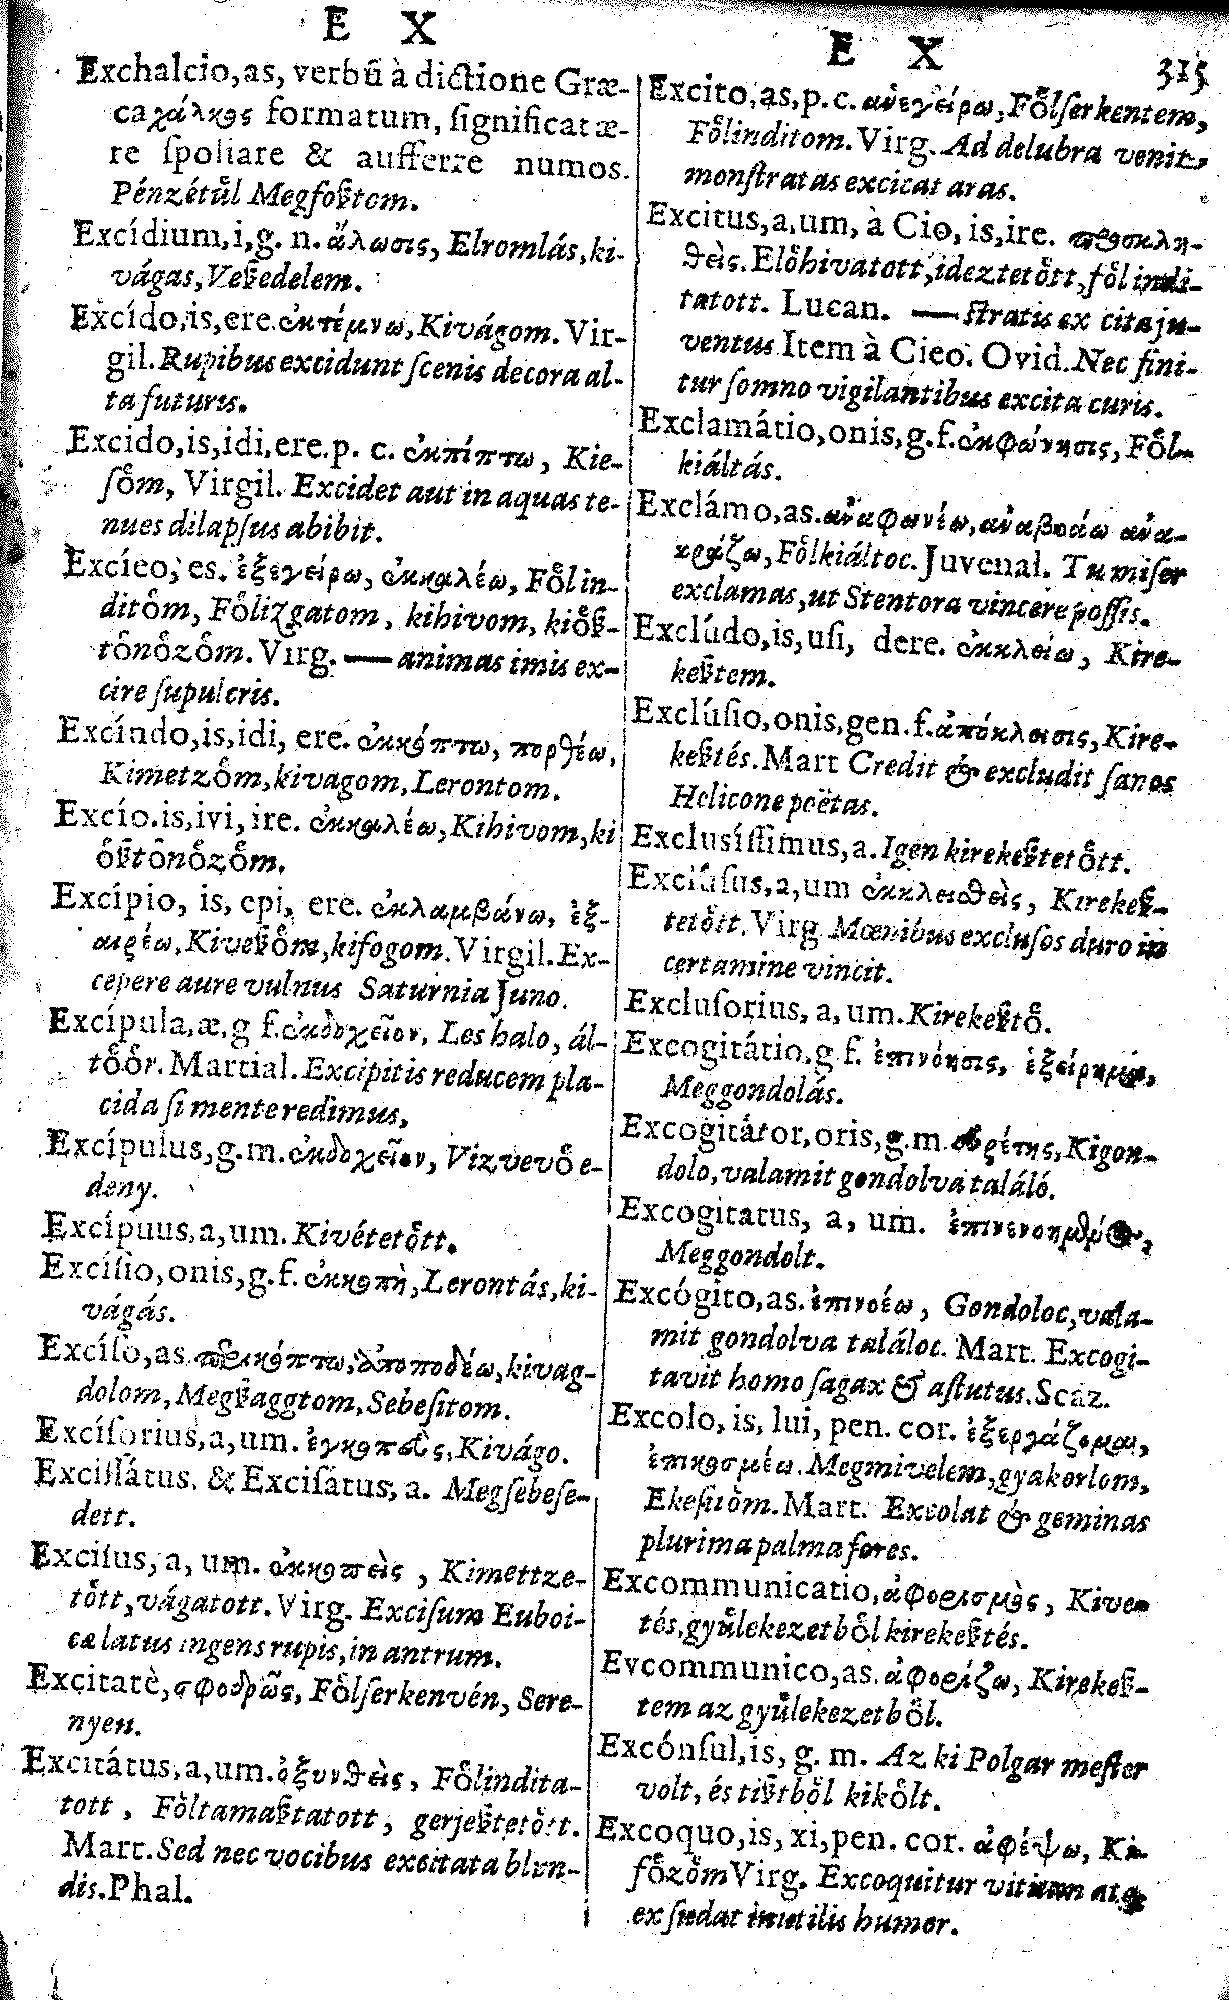 E X
Exchalcio, as, verbũ à dictione Græ-
ca χάλκος formatum, ſignificat æ-
re ſpoliare & aufferre numos.
Pénzétůl Megfoßtom.
Excídium, i, g. n. ἅλωσις, Elromlás, ki-
vágas, Veßedelem.
Excído, is, ere. ἐκτέμνω, Kivágom. Vir-
gil. Rupibus excidunt ſcenis decora al-
ta futuris.
Excido, is, idi, ere. p. c. ἐκπίπτω, Kie-
ſo̊m, Virgil. Excidet aut in aquas te-
nues dilapſus abibit.
Excíeo, es. ἐξεγείρω, ἐκκαλέω, Fo̊lin-
dito̊m, Fo̊lizgatom, kihivom, kio̊ß-
to̊no̊zo̊m. Virg. — animas imis ex-
cire ſupulcris.
Excíndo, is, idi, ere. ἐκκόπτω, πορθέω,
Kimetzo̊m, kivagom, Lerontom.
Excío. is, ivi, ire. ἐκκαλέω, Kihivom, ki
o̊ßto̊no̊zo̊m.
Excípio, is, epi, ere. ἐκλαμβάνω, ἐξ-
αιρέω, Kiveßo̊m, kifogom. Virgil. Ex-
cepere aure vulnus Saturnia Juno.
Excípula, æ, g f. ἐκδοχεῖον, Les halo, ál-
to̊o̊r. Martial. Excipitis reducem pla-
cida ſi mente redimus,
Excípulus, g. m. ἐκδοχεῖον, Viz vevo̊ e-
deny.
Excípuus, a, um. Kivéteto̊tt.
Excíſio, onis, g. f. ἐκκοπὴ, Lerontás, ki-
vágás.
Excíſo, as περικόπτω, ἀποποδέω, kivag-
dolom, Megßaggtom, Sebeſitom.
Excíſorius, a, um. ἐγκοπεὺς, Kivágo.
Exciſſátus. & Exciſátus, a. Megſebeſe-
dett.
Exciſus, a, um. ἐκκοπεὶς, Kimettze-
to̊tt, vágatott. Virg. Exciſum Euboi-
cæ latus ingens rupis, in antrum.
Excitatè, σφοδρῶς, Fo̊lſerkenvén, Sere-
nyen.
Excitátus, a, um. ὀξυνθεὶς, Fo̊lindita-
tott, Fo̊ltamaßtatott, gerjeßteto̊tt.
Mart. Sed nec vocibus excitata blan-
dis. Phal.
E X 315
Excito, as, p. c. ἀνεγείρω, Fo̊lſerkentem,
Fo̊linditom. Virg. Ad delubra venit,
monſtratas excitat aras.
Excitus, a, um, à Cio, is, ire. προσκλη-
θεὶς. Elo̊hivatott, idezteto̊tt, fo̊lindi-
tatott. Lucan. — ſtratis ex cita ju-
ventus Item à Cieo. Ovid. Nec fini-
tur ſomno vigilantibus excita curis.
Exclamátio, onis, g. f. ἐκφώνησις, Fo̊l-
kiáltás.
Exclámo, as. ἀναφωνέω, ἀναβοάω ἀνα-
κράζω, Fo̊lkiáltoc. Juvenal. Tu miſer
exclamas, ut Stentora vincere poſſis.
Exclúdo, is, uſi, dere. ἐκκλείω, Kire-
keßtem.
Exclúſio, onis, gen. f. ἀπόκλεισις, Kire-
keßtés. Mart Credit & excludit ſanos
Helicone poëtas.
Exclusíſſimus, a. Igen kirekeßteto̊tt.
Exclúſus, a, um ἐκκλεισθεὶς, Kirekeß-
teto̊tt. Virg Mœnibus excluſos duro in
certamine vincit.
Excluſorius, a, um. Kirekeßto̊.
Excogitátio. g. f. ἐπινόησις, ἐξείρημα,
Meggondolás.
Excogitátor, oris, g. m εὑρέτης, Kigon-
dolo, valamit gondolva találó.
Excogitatus, a, um. ἐπινενοημένος,
Meggondolt.
Excógito, as. ἐπινοέω, Gondoloc, vala-
mit gondolva találoc. Mart. Excogi-
tavit homo ſagax & aſtutus. Scaz.
Excolo, is, lui, pen. cor. ἐξεργάζομαι,
ἐπικοσμέω. Megmivelem, gyakorlom,
Ekeſito̊m. Mart. Excolat & geminas
plurima palma fores.
Excommunicatio, ἀφορισμὸς, Kive-
tés, gyůlekezetbo̊l kirekeßtés.
Evcommunico, as. ἀφορίζω, Kirekeß-
tem az gyůlekezetbo̊l.
Excónſul, is, g. m. Az ki Polgar meſter
volt, és tißtbo̊l kiko̊lt.
Excoquo, is, xi, pen. cor. ἀφέψω, Ki-
fo̊zo̊m Virg. Excoquitur vitium atq
exſudat inutilis humor.